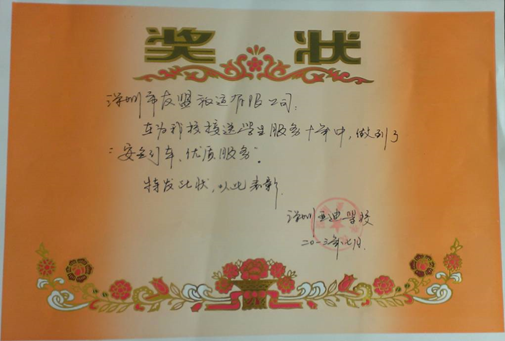 奖状
深圳市友盟服运有限公司:
在为我校接送学生服务十年中,做到了
"安全行车、优质服务"。
特发此状,以此表彰.
深圳亚迪学校
二〇一三年七月.